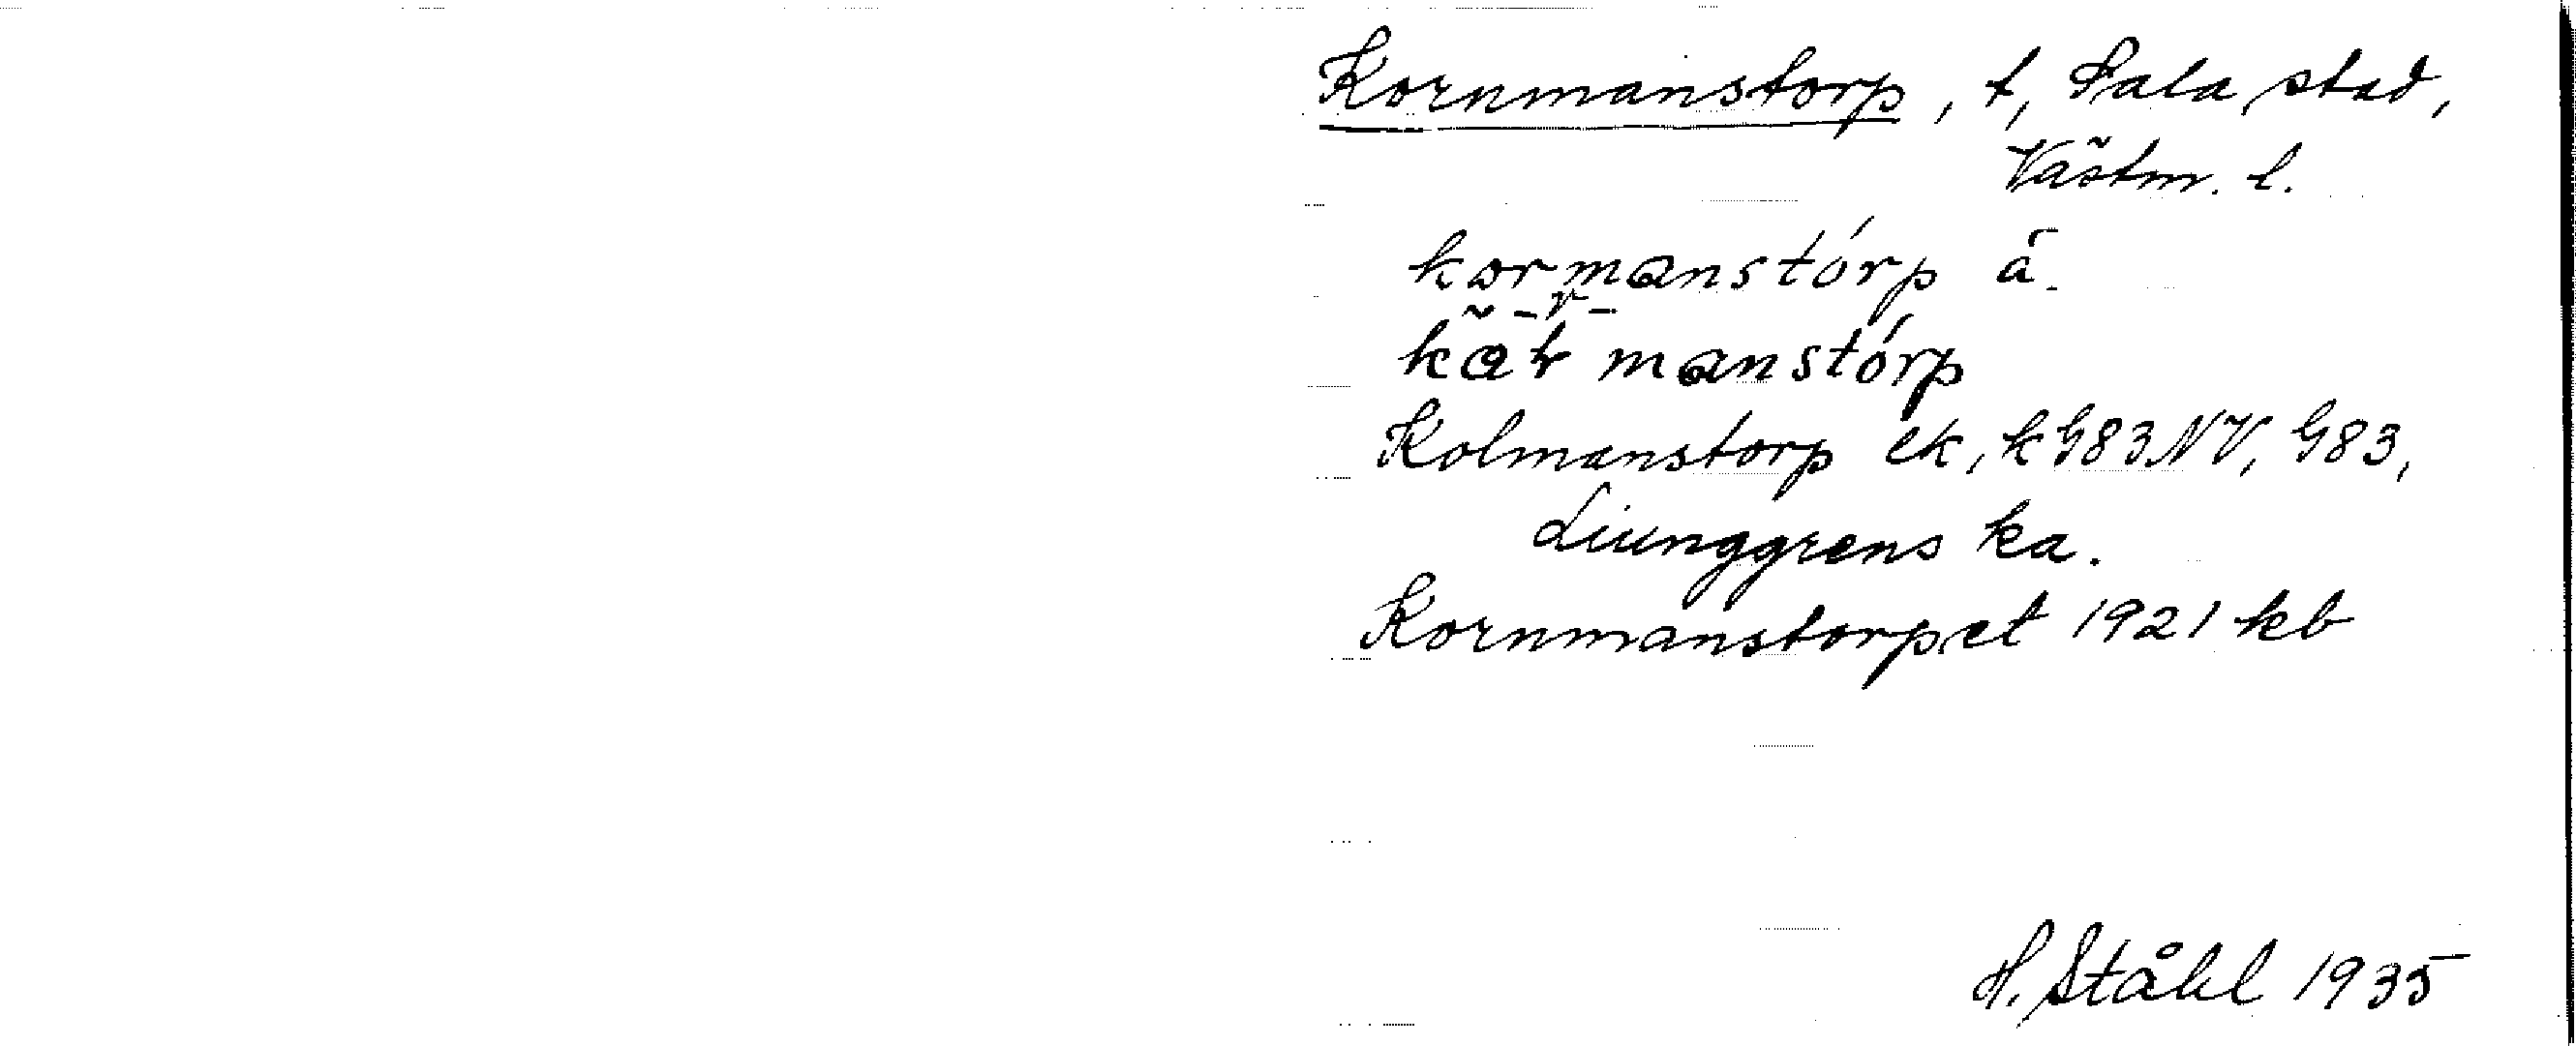 Kornmanstorp, t, Sala stad,
Västm. l.
kormanstórp å.
-r-
kãrmanstórp
Kolmanstorp ek, k G83NV, G83,
Liunggrens ka.
Kornmanstorpet 1921 kb
H. Ståhl 1935